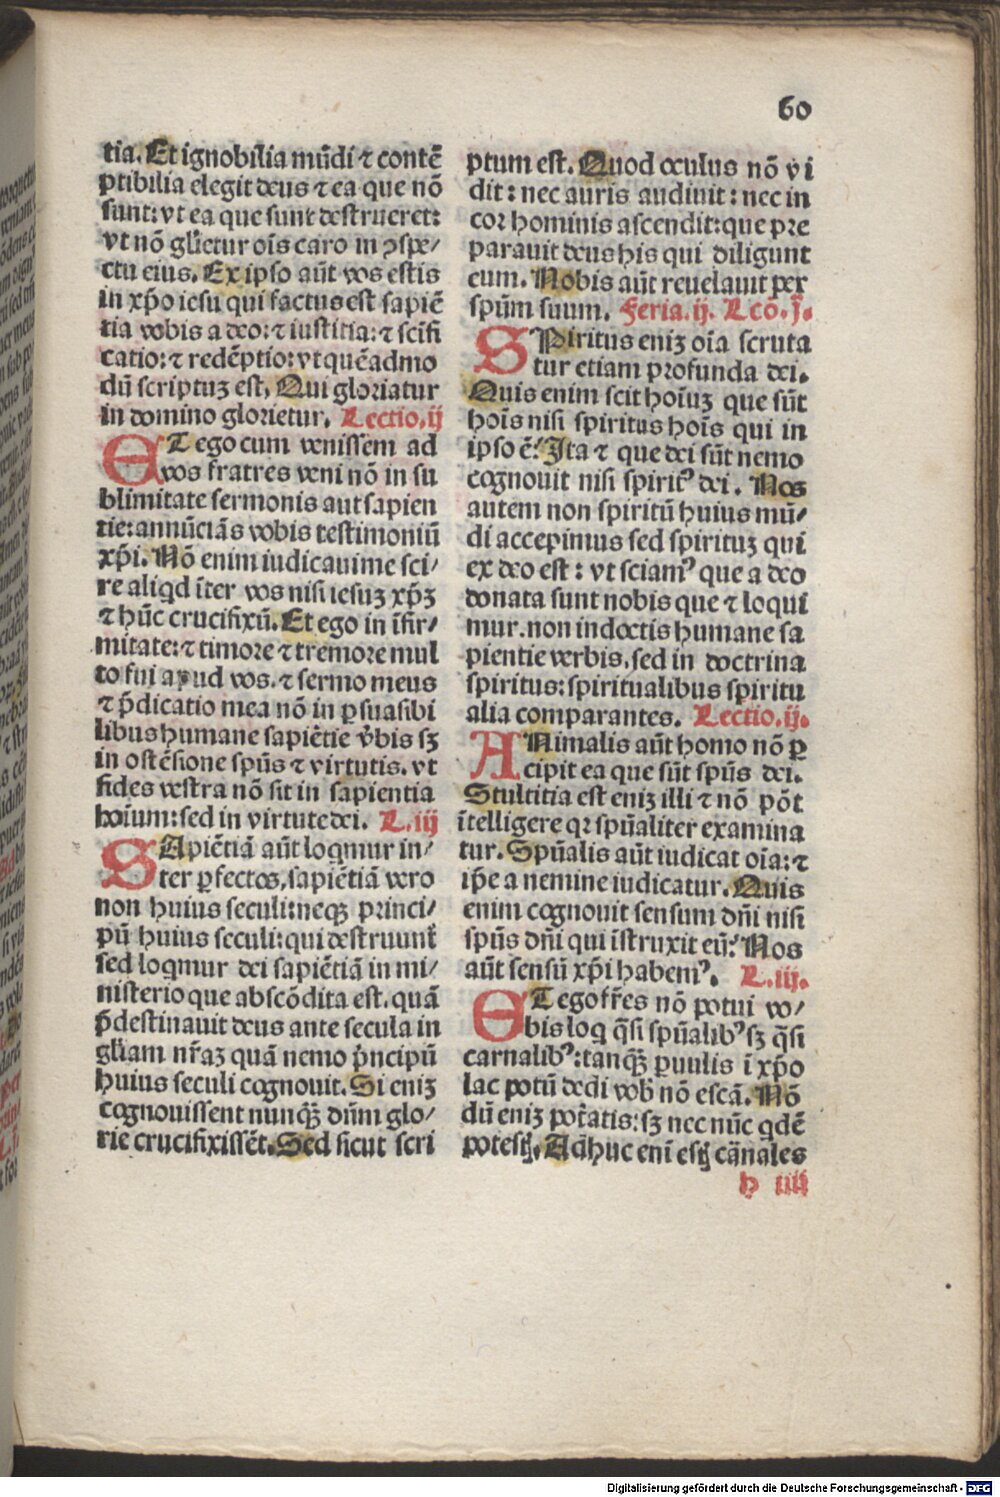 60
tia. Et ignobilia mūdi ⁊ contē
ptibilia elegit deus ⁊ ea que nō
sunt: vt ea que sunt destrueret:
vt nō gl̄ietur oīs caro in ꝯspe/
ctu eius. Ex ipso aūt vos estis
in xp̄o iesu qui factus est sapiē
tia vobis a deo: ⁊ iustitia: ⁊ scīfi
catio: ⁊ redēptio: vt quēadmo
dū scriptuȝ est, Qui gloriatur
in domino glorietur. Lectio.ij
ET ego cum venissem ad
vos fratres veni nō in su
blimitate sermonis aut sapien
tie: annūciās vobis testimoniū
xp̄i. Nō enim iudicaui me sci/
re aliqd īter vos nisi iesuȝ xp̄ȝ
⁊ hūc crucifixū. Et ego in īfir/
mitate: ⁊ timore ⁊ tremore mul
to fui apud vos. ⁊ sermo meus
⁊ p̄dicatio mea nō in ꝑsuasibi
libus humane sapiētie v̄bis sȝ
in ostēsione spūs ⁊ virtutis. vt
fides vestra nō sit in sapientia
hoīum: sed in virtute dei. L.iij
SApiētiā aūt loqmur in/
ter ꝑfectos, sapiētiā vero
non huius seculi: neqȝ princi/
pū huius seculi: qui destruunt̄
sed loqmur dei sapiētiā in mi/
nisterio que abscōdita est. quā
p̄destinauit deus ante secula in
gl̄iam nr̄aȝ quā nemo p̄ncipū
huius seculi cognouit. Si eniȝ
cognouissent nunqȝ̄ dūm glo/
rie crucifixissēt. Sed sicut scri
ptum est. Quod oculus nō vi
dit: nec auris audiuit: nec in
cor hominis ascendit: que pre
parauit deus his qui diligunt
eum. Nobis aūt reuelauit per
spūm suum. Feria.ij. Lcō.j.
SPiritus eniȝ oīa scruta
tur etiam profunda dei.
Quis enim scit hoīuȝ que sūt
hoīs nisi spiritus hoīs qui in
ipso ē? Ita ⁊ que dei sūt nemo
cognouit nisi spiritꝰ dei. Nos
autem non spiritū huius mū/
di accepimus sed spirituȝ qui
ex deo est: vt sciamꝰ que a deo
donata sunt nobis que ⁊ loqui
mur. non in doctis humane sa
pientie verbis, sed in doctrina
spiritus: spiritualibus spiritu
alia comparantes. Lectio.ij.
ANimalis aūt homo nō ꝑ
cipit ea que sūt spūs dei.
Stultitia est eniȝ illi ⁊ nō pōt
ītelligere qꝛ spūaliter examina
tur. Spūalis aūt iudicat oīa: ⁊
ip̄e a nemine iudicatur. Quis
enim cognouit sensum dn̄i nisi
spūs dn̄i qui īstruxit eū? Nos
aūt sensū xp̄i habemꝰ. L.iij.
ET ego fr̄es nō potui vo/
bis loq q̄si spūalibꝰ sȝ q̄si
carnalibꝰ: tanqȝ̄ ꝑuulis ī xp̄o
lac potū dedi vob̄ nō escā. Nō
dū eniȝ pot̄atis: sȝ nec nūc qdē
potestꝭ. Adhuc enī estꝭ cārnales
h iiij
Digitalisierung gefördert durch die Deutsche Forschungsgemeinschaft - DFG